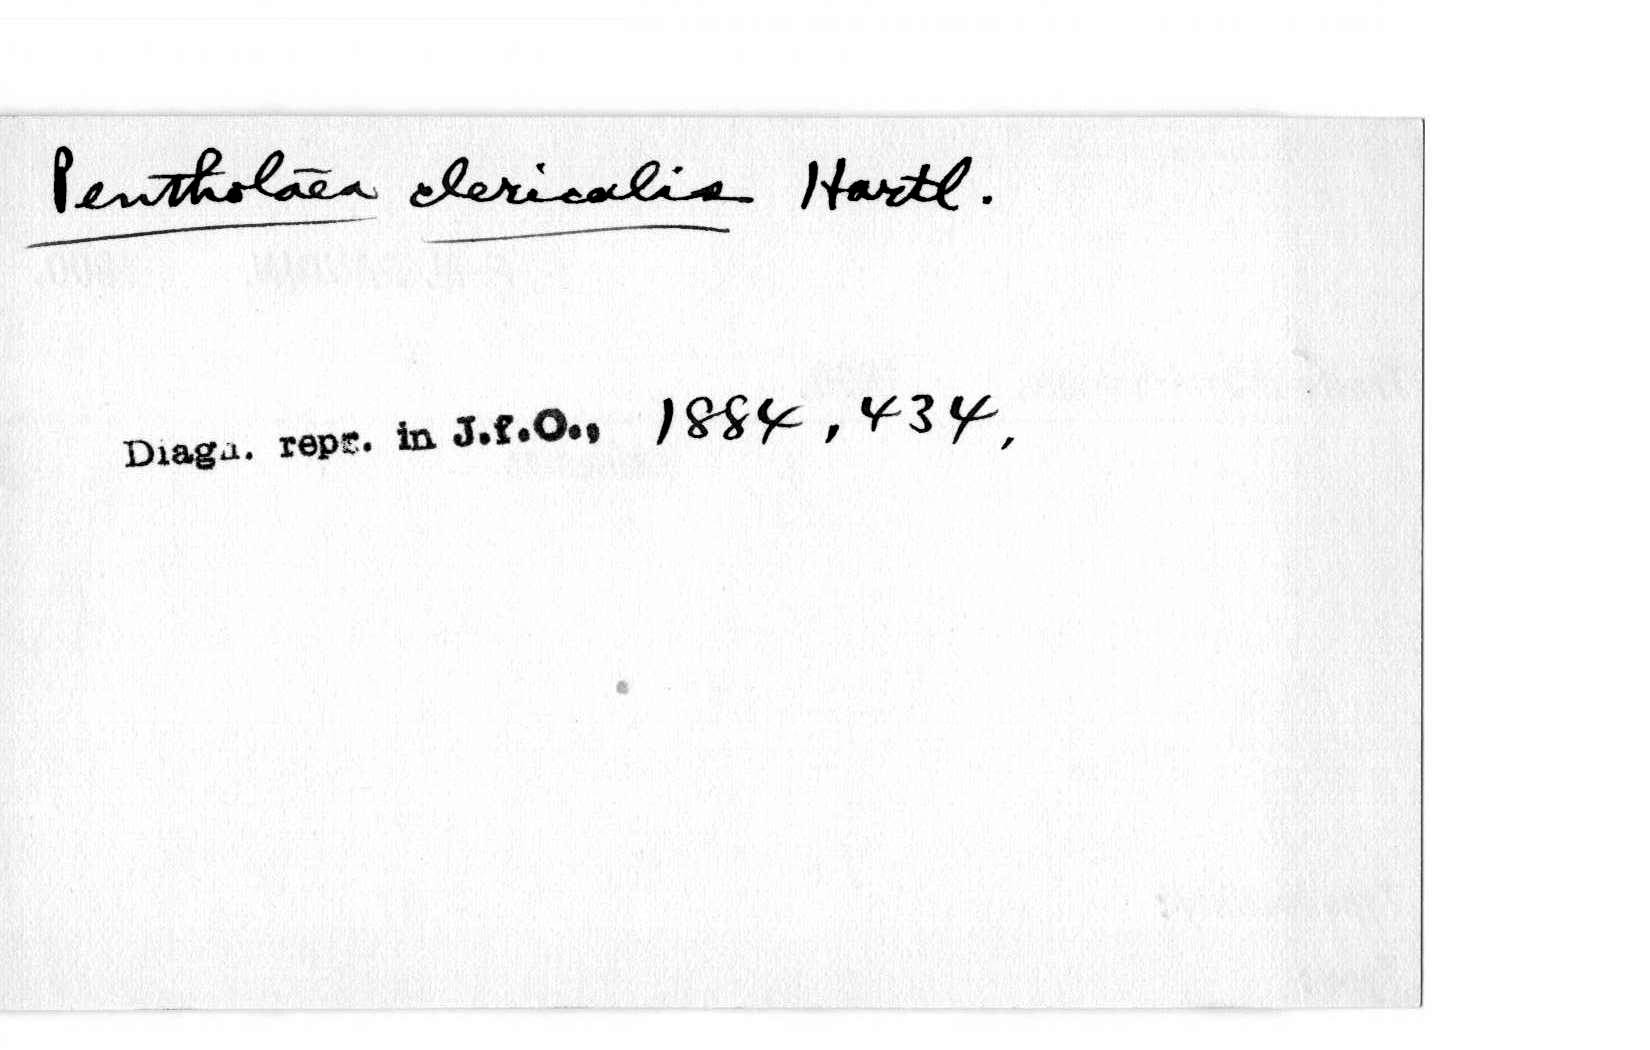 Pentholäea clericalis Hartl.
Diagn. repr. in J.f.O., 1884, 434,